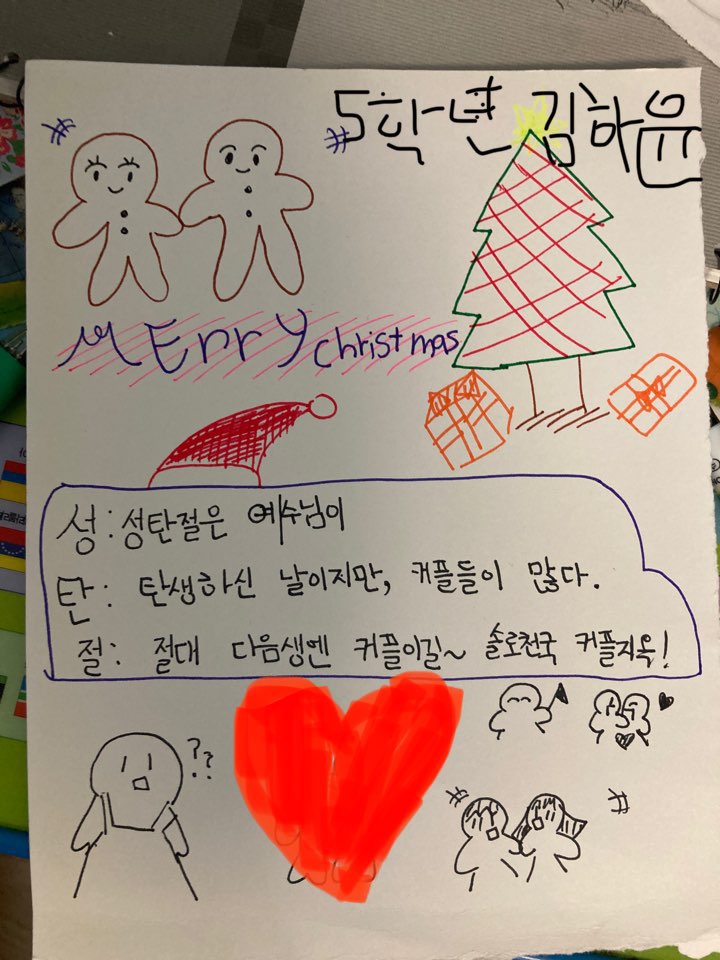 5학년 김하윤
MErry christmas
성: 성탄절은 예수님이
탄: 탄생하신 날이지만, 커플들이 많다.
절: 절대 다음생엔 커플이길~ 솔로천국 커플지옥!
??